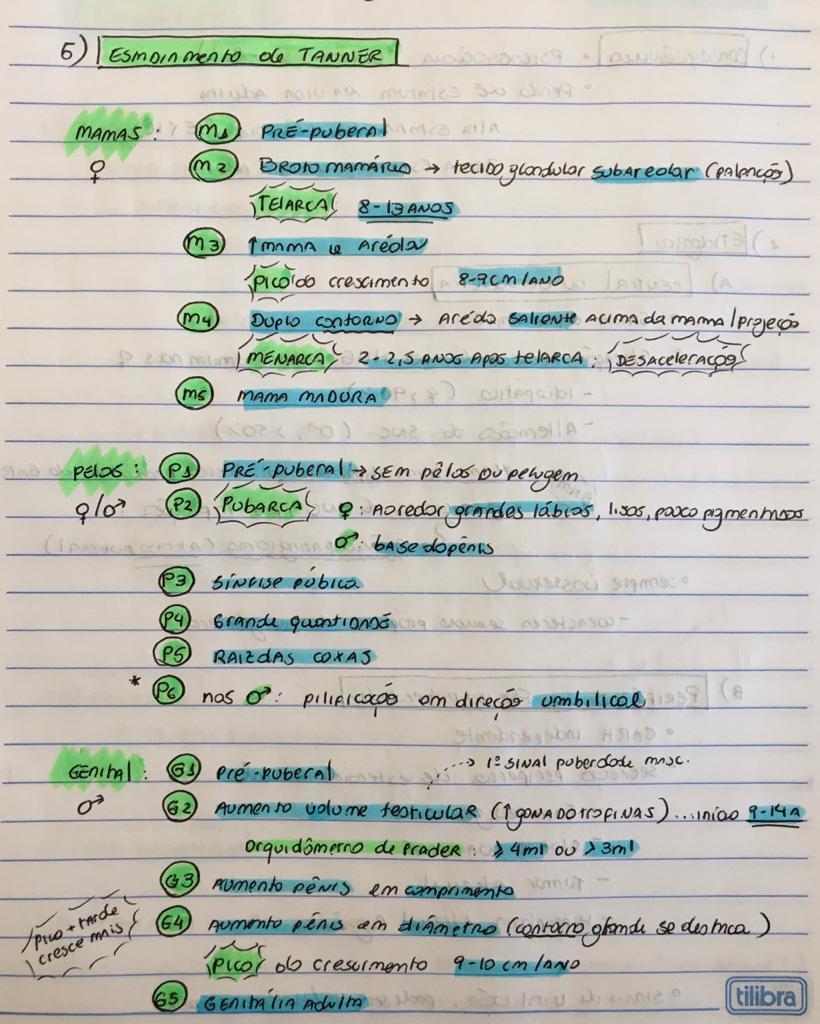 5) ESMDINMENTO de TANNER
MAMAS: M1 PRÉ-puberal
♀ M2 BROTO MAMÁRIO → tecido glandular subareolar (palpação)
TELARCA 8-13 ANOS
M3 ↑mama e aréola
PICO do crescimento 8-9cm/ANO
M4 Duplo contorno → Aréola saliente acima da mama/projeção
MENARCA 2-2,5 ANOS após telarca: DESACELERAÇÃO
M5 MAMA MADURA
PELOS: P1 PRÉ-puberal → SEM pêlos ou pelugem
♀/♂ P2 PUBARCA ♀: Ao redor grandes lábios, lisos, pouco pigmentados
♂: base do pênis
P3 Sínfise púbica
P4 Grande quantidade
P5 RAIZ DAS COXAS
* P6 nos ♂: pilificação em direção umbilical
GENITAL: G1 PRÉ-puberal → 1º SINAL puberdade masc.
♂ G2 Aumento volume testicular (↑gonadotrofinas)...início 9-14A
Orquidômetro de Prader: ≥ 4ml ou > 3ml
G3 Aumento pênis em comprimento
G4 Aumento pênis em diâmetro (contorno glande se destaca)
pico + tarde
cresce mais
PICO do crescimento 9-10 cm/ANO
G5 GENITÁLIA ADULTA
tilibra